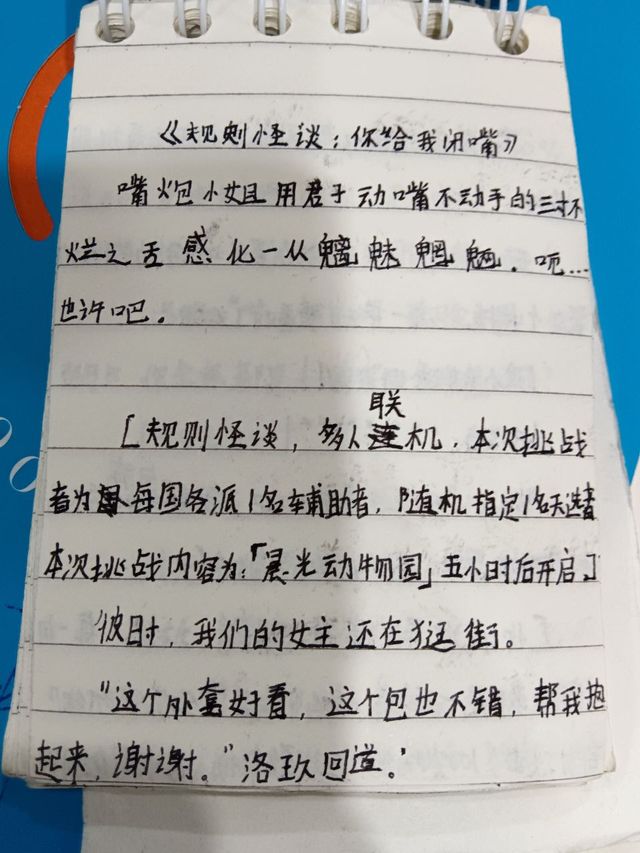 《规则怪谈：你给我闭嘴》
嘴炮小姐用君子动嘴不动手的三寸不
烂之舌感化一从魑魅魍魉。呃…
也许吧。
联
[规则怪谈，多人连机，本次挑战
者为每国各派1名辅助者，随机指定1名天选者
本次挑战内容为：「晨光动物园」五小时后开启]
彼时，我们的女主还在逛街。
“这个外套好看，这个包也不错，帮我抱
起来，谢谢。”洛玖回道。